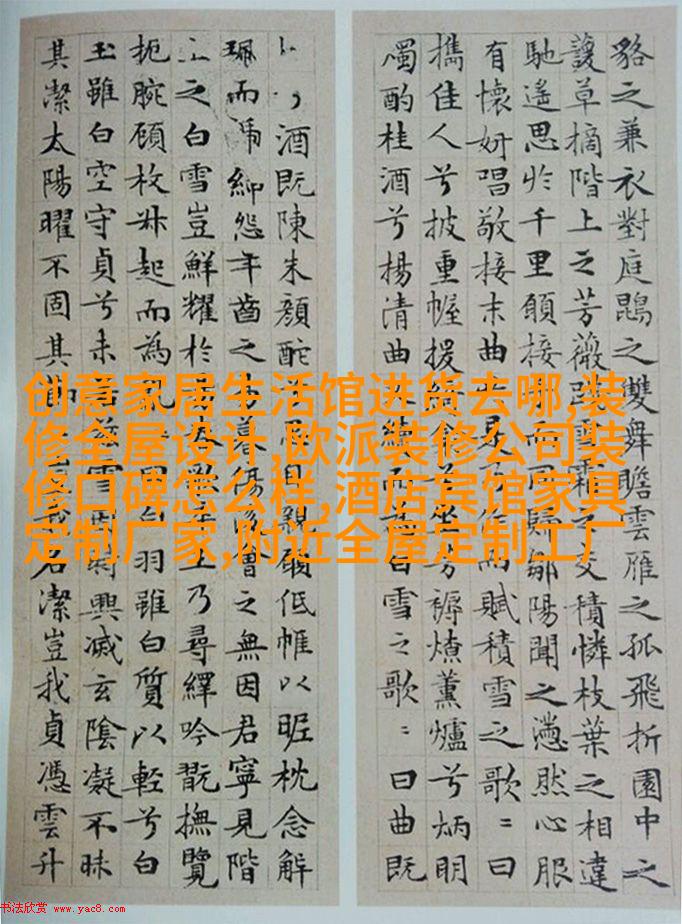 貉之兼衣對庭鵾之雙舞瞻雲雁之孤飛折園中之
草摘階上之芳薇踐雪霜之交積憐枝葉之相違
馳遙思於千里願接而同歸鄒陽聞之懣然心服
有懷妍唱敬接末曲於是乃作而賦積雪之歌〻曰
攜佳人兮披重幄援綺衾兮坐芳褥燎薰爐兮炳明
燭酌桂酒兮揚清曲又續而為白雪之歌〻曰曲既
酒既陳朱顏酡兮思自親願低帷以昵枕念解
珮而褫紳怨年之暮傷後會之無因君寧見階
上之白雪豈鮮耀於春歌卒王乃尋繹吟翫撫覽
扼腕顧枚叔起而為亂曰白羽雖白質以輕兮白
玉雖白空守貞兮未若茲雪因時興滅玄陰凝不昧
其潔太陽曜不固其節豈我名潔豈我貞憑雲升
创意家居生活馆进货去哪,装
修全屋设计,欧派装修公司装
修口碑怎么样,酒店宾馆家具
定制厂家,附近全屋定制工厂
书法欣赏 www.yac8.com